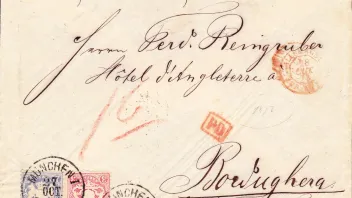 Herrn Ferd. Reingruber
Hôtel d'Angleterre a
PD
Bordughera
MÜNCHEN I
27
OCT